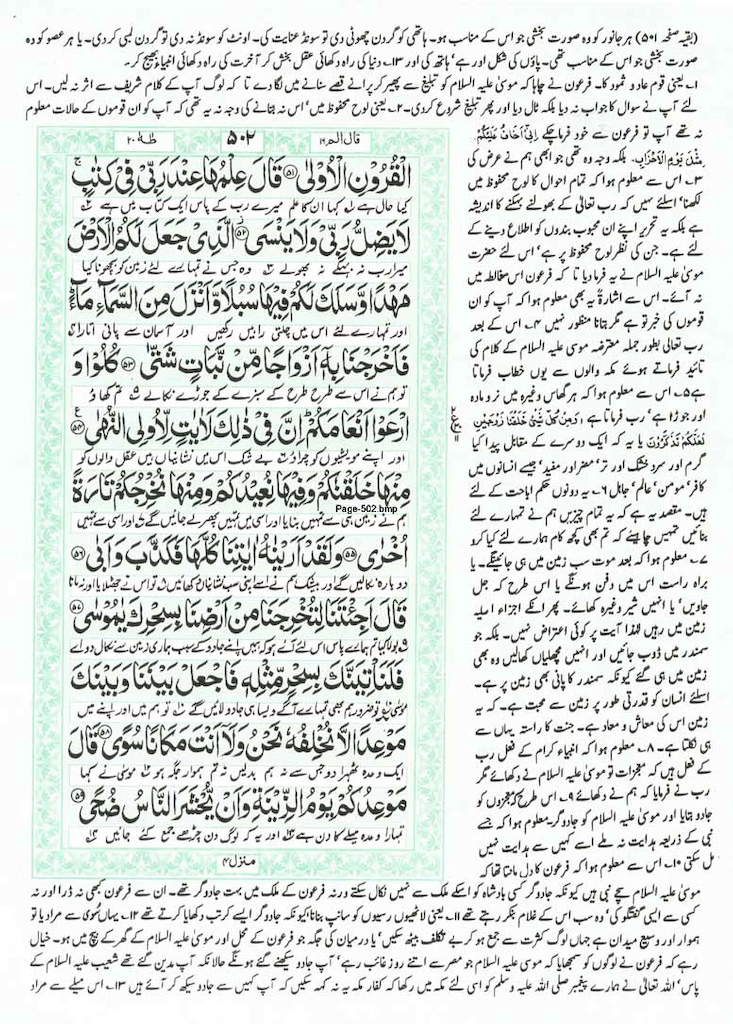 (بقیہ صفحہ ۵۰۱) ہر جانور کو وہ صورت بخشی جو اس کے مناسب ہو۔ ہاتھی کو گردن چھوٹی دی تو سونڈ عنایت کی۔ اونٹ کو سونڈ نہ دی تو گردن لمبی کر دی۔ یا ہر عضو کو وہ
صورت بخشی جو اس کے مناسب تھی۔ پاؤں کی شکل اور ہے ہاتھ کی اور ۱۳۔ دنیا کی راہ دکھائی عقل بخش کر آخرت کی راہ دکھائی انبیاء بھیج کر۔
۱۔ یعنی قوم عاد و ثمود کا۔ فرعون نے چاہا کہ موسیٰ علیہ السلام کو تبلیغ سے پھیر کر پرانے قصے سنانے میں لگا دے تا کہ لوگ آپ کے کلام شریف سے اثر نہ لیں۔ اس
لئے آپ نے سوال کا جواب نہ دیا بلکہ ٹال دیا اور پھر تبلیغ شروع کر دی۔ ۲۔ یعنی لوح محفوظ میں، اس نہ بتانے کی وجہ نہ یہ تھی کہ آپ کو ان قوموں کے حالات معلوم
نہ تھے آپ تو فرعون سے خود فرما چکے اِنِّیْ اَخَافُ عَلَیْکُمْ
مِثْلَ یَوْمِ الْاَحْزَابِ۔ بلکہ وجہ وہ تھی جو ابھی ہم نے عرض کی
۳۔ اس سے معلوم ہوا کہ تمام احوال کا لوح محفوظ میں
لکھنا اسلئے نہیں کہ رب تعالیٰ کے بھولنے بہکنے کا اندیشہ
ہے بلکہ یہ تحریر اپنے ان محبوب بندوں کو اطلاع دینے کے
لئے ہے۔ جن کی نظر لوح محفوظ پر ہے، اس لئے حضرت
موسیٰ علیہ السلام نے یہ فرما دیا تا کہ فرعون اس مغالطہ میں
نہ آئے۔ اس سے اشارۃً یہ بھی معلوم ہوا کہ آپ کو ان
قوموں کی خبر تو ہے مگر بتانا منظور نہیں ۴۔ اس کے بعد
رب تعالیٰ بطور جملہ معترضہ موسیٰ علیہ السلام کے کلام کی
تائید فرماتے ہوئے مکہ والوں سے یوں خطاب فرماتا
ہے ۵۔ اس سے معلوم ہوا کہ ہر گھاس وغیرہ میں نر و مادہ
اور جوڑا ہے، رب فرماتا ہے وَمِنْ کُلِّ شَیْءٍ خَلَقْنَا زَوْجَیْنِ
لَعَلَّکُمْ تَذَکَّرُوْنَ یا یہ کہ ایک دوسرے کے مقابل پیدا کیا
گرم اور سرد خشک اور تر، مضر اور مفید، جیسے انسانوں میں
کافر، مومن، عالم، جاہل ۶۔ یہ دونوں حکم اباحت کے لئے
ہیں۔ مقصد یہ ہے کہ یہ تمام چیزیں ہم نے تمہارے لئے
بنائیں تمہیں چاہیئے کہ تم بھی کچھ کام ہمارے لئے کیا کرو
۷۔ معلوم ہوا کہ بعد موت سب زمین میں ہی جائینگے۔ یا
براہ راست اس میں دفن ہونگے یا اس طرح کہ جل
جاویں، یا انہیں شیر وغیرہ کھائے۔ پھر انکے اجزاء اصلیہ
زمین میں رہیں لہٰذا آیت پر کوئی اعتراض نہیں۔ بلکہ جو
سمندر میں ڈوب جائیں اور انہیں مچھلیاں کھالیں وہ بھی
زمین میں ہی گئے کیونکہ سمندر کا پانی بھی زمین پر ہے۔
اسلئے انسان کو قدرتی طور پر زمین سے محبت ہے۔ کہ یہ
زمین اس کی معاش و معاد ہے۔ جنت کا راستہ یہاں سے
ہی نکلتا ہے۔ ۸۔ معلوم ہوا کہ انبیاء کرام کے فعل رب
کے فعل ہیں کہ معجزات تو موسیٰ علیہ السلام نے دکھائے مگر
رب نے فرمایا کہ ہم نے دکھائے ۹۔ اس طرح کہ معجزوں کو
جادو بتایا اور موسیٰ علیہ السلام کو جادوگر۔ معلوم ہوا کہ جسے
نبی کے ذریعہ ہدایت نہ ملے اسے کہیں سے ہدایت نہیں
مل سکتی ۱۰۔ اس سے معلوم ہوا کہ فرعون کا دل مانتا تھا کہ
قال الم ۱۶ ۵۰۲ طٰہٰ ۲۰
الْقُرُوْنِ الْاُوْلٰی ﴿۵۱﴾ قَالَ عِلْمُهَا عِنْدَ رَبِّیْ فِیْ كِتٰبٍ
کیا حال ہے ۱؎ کہا ان کا علم میرے رب کے پاس ایک کتاب میں ہے ۲؎
لَا یَضِلُّ رَبِّیْ وَلَا یَنْسَی ﴿۵۲﴾ الَّذِیْ جَعَلَ لَكُمُ الْاَرْضَ
میرا رب نہ بہکے نہ بھولے ۳؎ وہ جس نے تمہارے لئے زمین کو بچھونا کیا
مَهْدًا وَّسَلَكَ لَكُمْ فِیْهَا سُبُلًا وَّاَنْزَلَ مِنَ السَّمَآءِ مَآءً
اور تمہارے لئے اس میں چلتی راہیں رکھیں اور آسمان سے پانی اتارا
فَاَخْرَجْنَا بِهٖۤ اَزْوَاجًا مِّنْ نَّبَاتٍ شَتّٰی ﴿۵۳﴾ كُلُوْا وَ
تو ہم نے اس سے طرح طرح کے سبزے کے جوڑے نکالے ۵؎ تم کھاؤ
ارْعَوْا اَنْعَامَكُمْ اِنَّ فِیْ ذٰلِكَ لَاٰیٰتٍ لِّاُولِی النُّهٰی ﴿۵۴﴾
اور اپنے مویشیوں کو چراؤ ۶؎ بے شک اس میں نشانیاں ہیں عقل والوں کو
مِنْهَا خَلَقْنٰكُمْ وَفِیْهَا نُعِیْدُكُمْ وَمِنْهَا نُخْرِجُكُمْ تَارَةً
Page-502.bmp
ہم نے زمین ہی سے تمہیں بنایا اور اسی میں تمہیں پھر لے جائیں گے ۷؎ اور اسی سے تمہیں
اُخْرٰی ﴿۵۵﴾ وَلَقَدْ اَرَیْنٰهُ اٰیٰتِنَا كُلَّهَا فَكَذَّبَ وَاَبٰی ﴿۵۶﴾
دوبارہ نکالیں گے اور بیشک ہم نے اسے اپنی سب نشانیاں دکھائیں ۸؎ تو اس نے جھٹلایا اور نہ مانا
قَالَ اَجِئْتَنَا لِتُخْرِجَنَا مِنْ اَرْضِنَا بِسِحْرِكَ یٰمُوْسٰی ﴿۵۷﴾
بولا کیا تم ہمارے پاس اس لئے آئے ہو کہ ہمیں اپنے جادو کے سبب ہماری زمین سے نکال دو اے
فَلَنَاْتِیَنَّكَ بِسِحْرٍ مِّثْلِهٖ فَاجْعَلْ بَیْنَنَا وَبَیْنَكَ
موسیٰ ۱۰؎ تو ضرور ہم بھی تمہارے آگے ویسا ہی جادو لائیں گے ۱۱؎ تو ہم میں اور اپنے میں
مَوْعِدًا لَّا نُخْلِفُهٗ نَحْنُ وَلَاۤ اَنْتَ مَكَانًا سُوًی ﴿۵۸﴾ قَالَ
ایک وعدہ ٹھہرا دو جس سے نہ ہم بدلیں نہ تم ہموار جگہ ہو ۱۲؎ موسیٰ نے کہا
مَوْعِدُكُمْ یَوْمُ الزِّیْنَةِ وَاَنْ یُّحْشَرَ النَّاسُ ضُحًی ﴿۵۹﴾
تمہارا وعدہ میلے کا دن ہے ۱۳؎ اور یہ کہ لوگ دن چڑھے جمع کئے جائیں
منزل ۴
موسیٰ علیہ السلام سچے نبی ہیں کیونکہ جادوگر کسی بادشاہ کو اسکے ملک سے نہیں نکال سکتے ورنہ فرعون کے ملک میں بہت جادوگر تھے۔ ان سے فرعون کبھی نہ ڈرا اور نہ
کسی سے ایسی گفتگو کی، وہ سب اس کے غلام بنکر رہتے تھے ۱۱۔ یعنی لاٹھیوں رسیوں کو سانپ بنانا، کیونکہ جادوگر ایسے کرتب دکھایا کرتے تھے ۱۲۔ یہاں سُویٰ سے مراد یا تو
ہموار اور وسیع میدان ہے جہاں لوگ کثرت سے جمع ہو کر بے تکلف بیٹھ سکیں، یا درمیان کی جگہ جو فرعون کے محل اور موسیٰ علیہ السلام کے گھر کے بیچ میں ہو۔ خیال
رہے کہ فرعون نے لوگوں کو سمجھایا کہ موسیٰ علیہ السلام جو مصر سے اتنے روز غائب رہے، آپ جادو سیکھنے گئے ہونگے حالانکہ آپ مدین گئے تھے شعیب علیہ السلام کے
پاس، اللہ تعالیٰ نے ہمارے پیغمبر صلی اللہ علیہ وسلم کو اسی لئے مکہ میں رکھا کہ کفار مکہ یہ نہ کہہ سکیں کہ آپ کہیں سے جادو سیکھ کر آئے ہیں ۱۳۔ اس میلے سے مراد